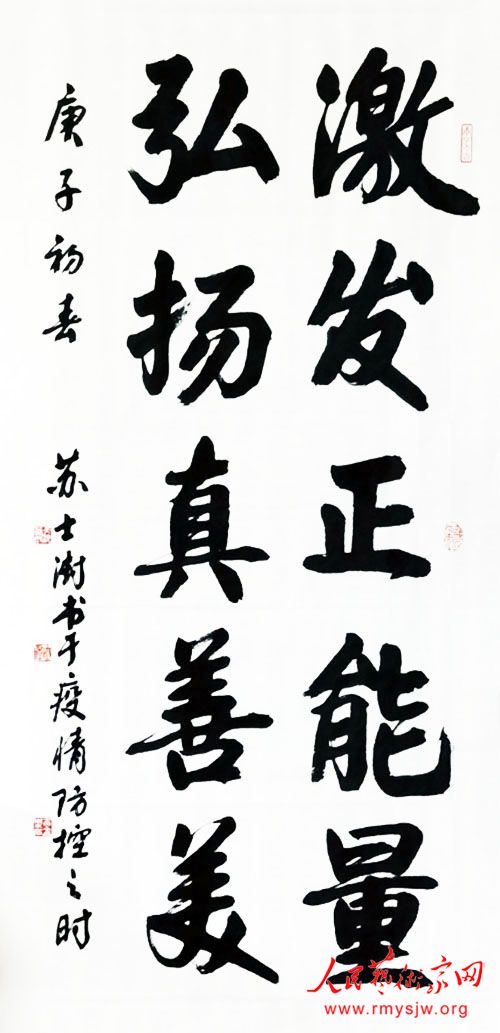 激发正能量
弘扬真善美
庚子初春
苏士澍书于疫情防控之时
人民艺术家网
www.rmysjw.org